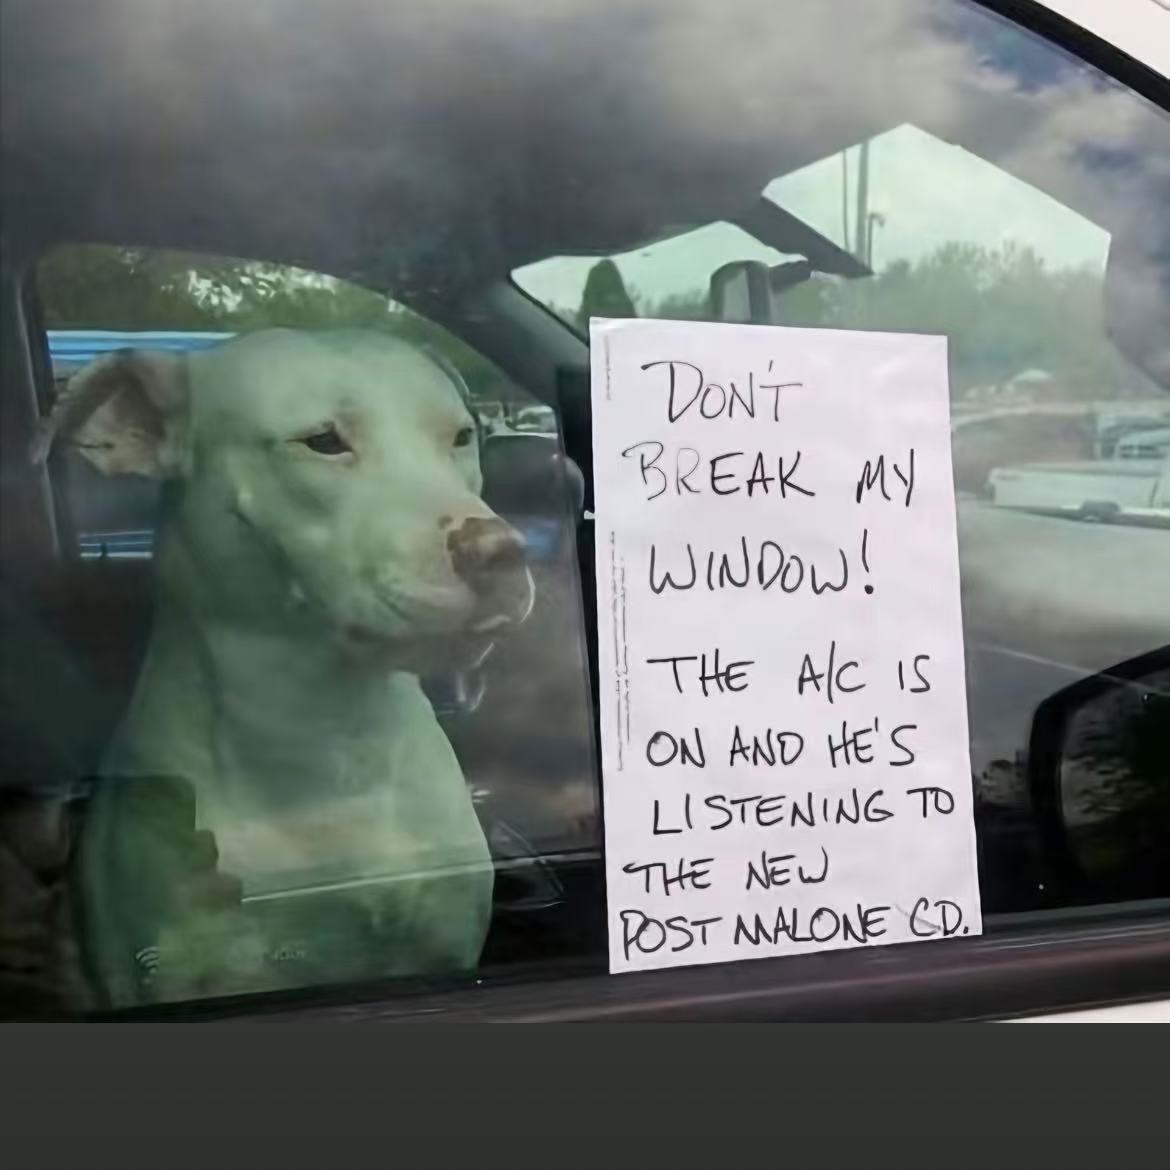 DON'T
BREAK MY
WINDOW!
THE A/C IS
ON AND HE'S
LISTENING TO
THE NEW
POST MALONE CD.